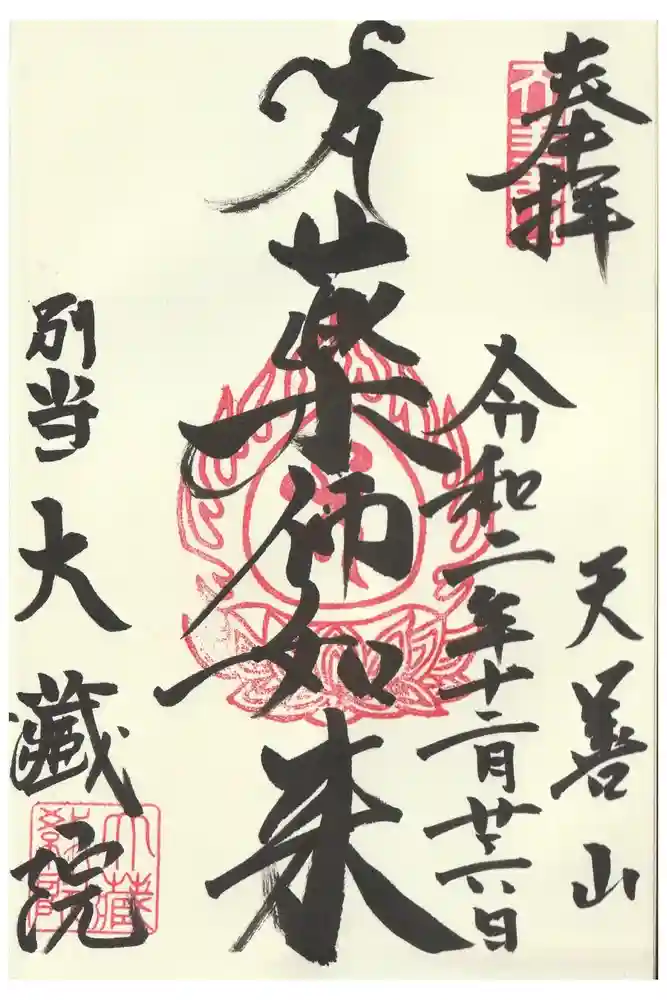 奉拝
天善山
令和二年十二月廿六日
薬師如来
別当 大藏院